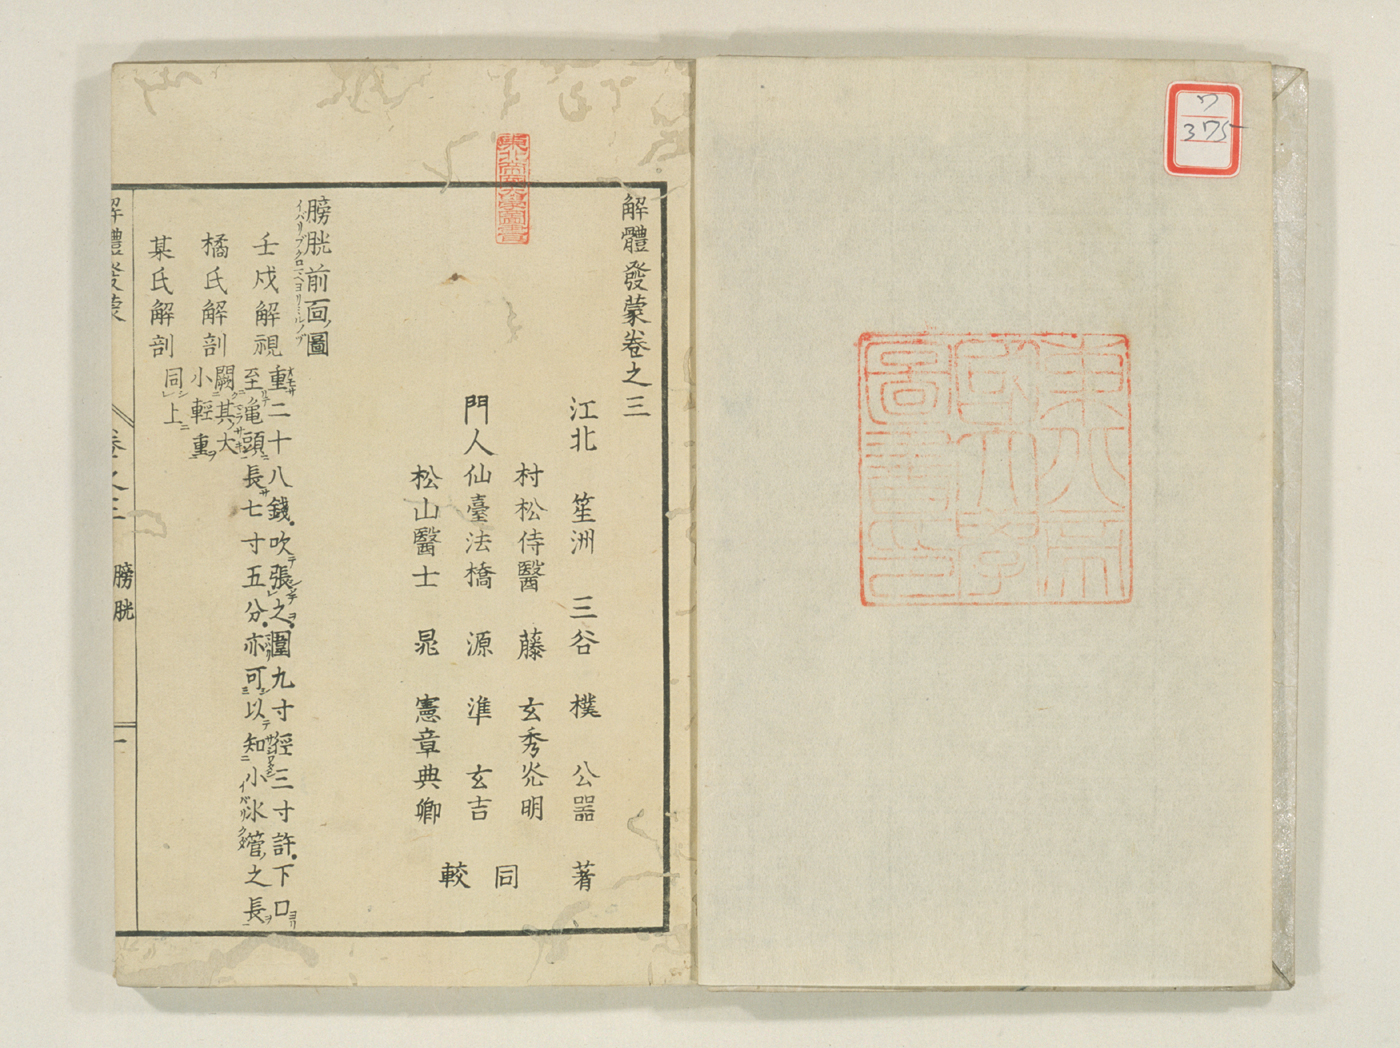 ワ
375
東北帝
國大學
圖書印
東北帝國大學圖書
解體發蒙卷之三
江北 笙洲 三谷 樸 公器 著
村松侍醫 藤 玄秀 炗明
門人 仙臺法橋 源 準 玄吉 同較
松山醫士 晁 憲章 典卿
膀胱前面圖
イバリブクロマヘヨリミルノヅ
壬戌解視 重二十八錢吹張之圍九寸徑三寸許下口
至亀頭長七寸五分亦可以知小水管之長
橘氏解剖 闕其大
小輕重
某氏解剖 同上
解體發蒙 卷之三 膀胱 一